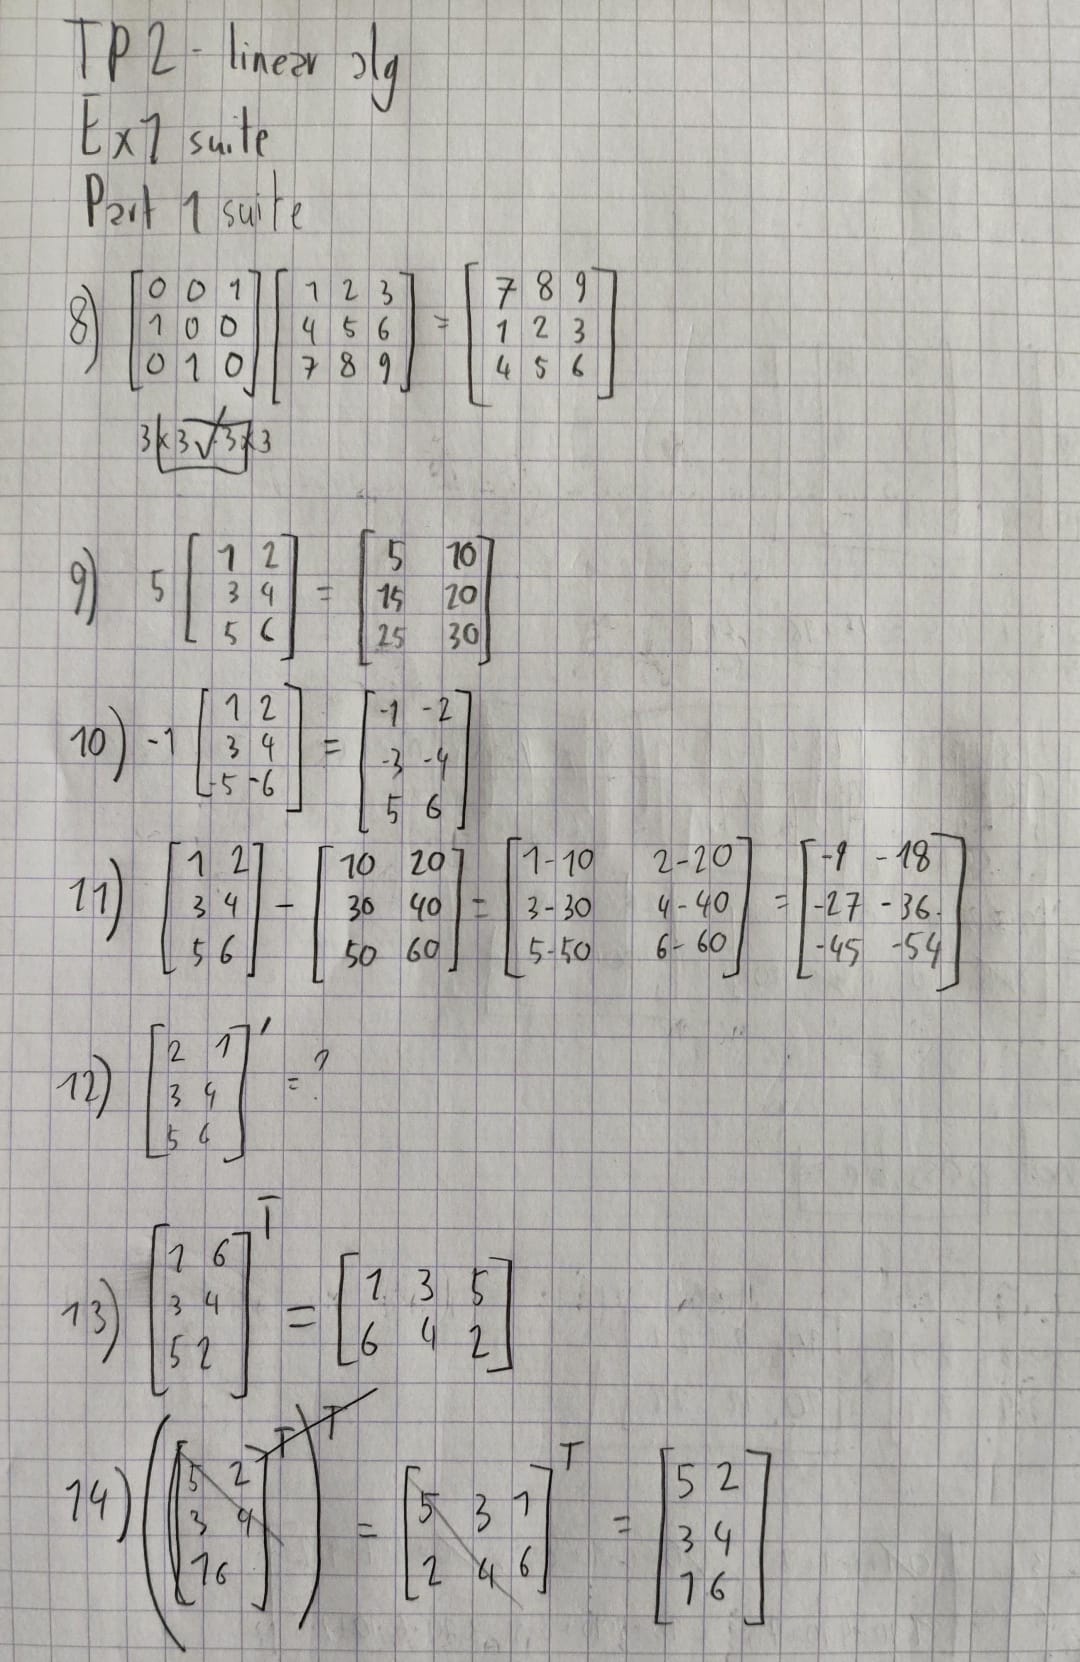 TP2 - linear alg
Ex1 suite
Part 1 suite
8) [0 0 1; 1 0 0; 0 1 0] [1 2 3; 4 5 6; 7 8 9] = [7 8 9; 1 2 3; 4 5 6]
3x3 √ 3x3
9) 5 [1 2; 3 4; 5 6] = [5 10; 15 20; 25 30]
10) -1 [1 2; 3 4; -5 -6] = [-1 -2; -3 -4; 5 6]
11) [1 2; 3 4; 5 6] - [10 20; 30 40; 50 60] = [1-10 2-20; 3-30 4-40; 5-50 6-60] = [-9 -18; -27 -36; -45 -54]
12) [2 1; 3 4; 5 6]' = ?
13) [1 6; 3 4; 5 2]^T = [1 3 5; 6 4 2]
14) ([5 2; 3 4; 1 6]^T)^T = [5 3 1; 2 4 6]^T = [5 2; 3 4; 1 6]